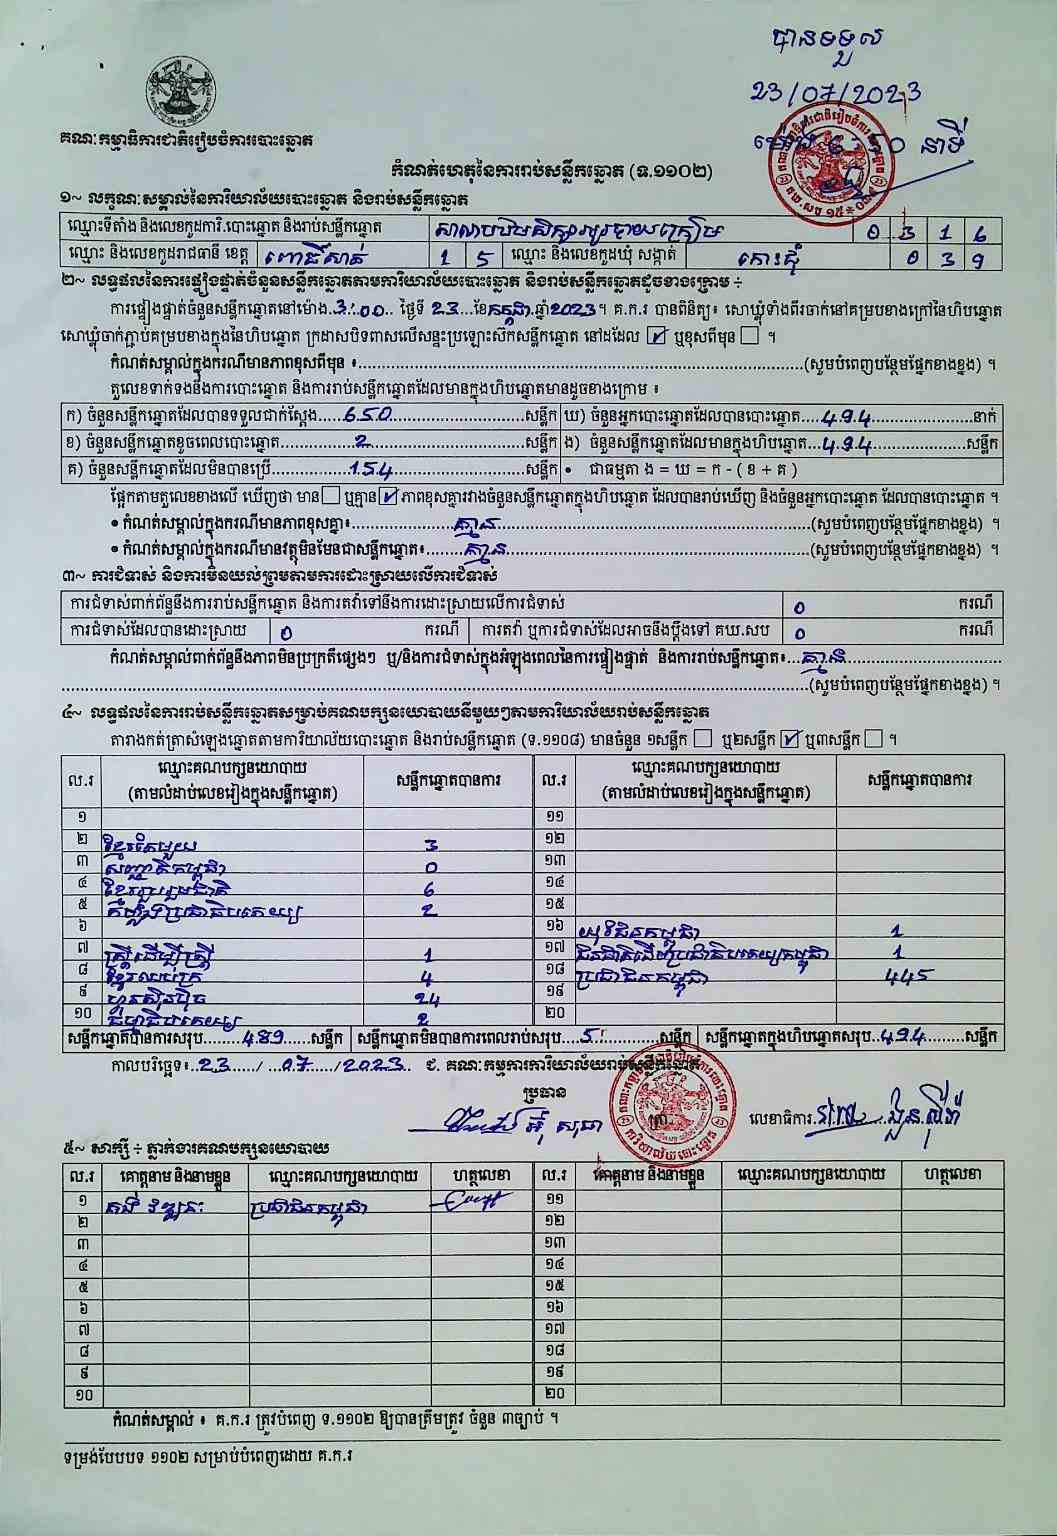 បានទទួល
23/07/2023
នាទី
គណៈកម្មាធិការជាតិរៀបចំការបោះឆ្នោត
កំណត់ហេតុនៃការរាប់សន្លឹកឆ្នោត (ទ.១១០២)
១~ លក្ខណៈសម្គាល់នៃការិយាល័យបោះឆ្នោត និងរាប់សន្លឹកឆ្នោត
ឈ្មោះទីតាំង និងលេខកូដការិ.បោះឆ្នោត និងរាប់សន្លឹកឆ្នោត 0 3 1 6
ឈ្មោះ និងលេខកូដរាជធានី ខេត្ត ពោធិ៍សាត់ 1 5 ឈ្មោះ និងលេខកូដឃុំ សង្កាត់ កោះជុំ 0 3 9
២~ លទ្ធផលនៃការផ្ទៀងផ្ទាត់ចំនួនសន្លឹកឆ្នោតតាមការិយាល័យបោះឆ្នោត និងរាប់សន្លឹកឆ្នោតដូចខាងក្រោម ÷
ការផ្ទៀងផ្ទាត់ចំនួនសន្លឹកឆ្នោតនៅម៉ោង 3:00 ថ្ងៃទី 23 ខែកក្កដា ឆ្នាំ2023។ គ.ក.រ បានពិនិត្យ៖ សោឃ្លុំទាំងពីរចាក់នៅគម្របខាងក្រៅនៃហិបឆ្នោត
សោឃ្លុំចាក់ភ្ជាប់គម្របខាងក្នុងនៃហិបឆ្នោត ក្រដាសបិទពាសលើសន្ទះប្រឡោះស៊កសន្លឹកឆ្នោត នៅដដែល ☑ ឬខុសពីមុន ☐ ។
កំណត់សម្គាល់ក្នុងករណីមានភាពខុសពីមុន ៖ (សូមបំពេញបន្ថែមផ្នែកខាងខ្នង) ។
តួលេខទាក់ទងនឹងការបោះឆ្នោត និងការរាប់សន្លឹកឆ្នោតដែលមានក្នុងហិបឆ្នោតមានដូចខាងក្រោម ៖
ក) ចំនួនសន្លឹកឆ្នោតដែលបានទទួលជាក់ស្តែង 650 សន្លឹក ឃ) ចំនួនអ្នកបោះឆ្នោតដែលបានបោះឆ្នោត 494 នាក់
ខ) ចំនួនសន្លឹកឆ្នោតខូចពេលបោះឆ្នោត 2 សន្លឹក ង) ចំនួនសន្លឹកឆ្នោតដែលមានក្នុងហិបឆ្នោត 494 សន្លឹក
គ) ចំនួនសន្លឹកឆ្នោតដែលមិនបានប្រើ 154 សន្លឹក • ជាធម្មតា ង = ឃ = ក - ( ខ + គ )
ផ្អែកតាមតួលេខខាងលើ ឃើញថា មាន ☐ ឬគ្មាន ☑ ភាពខុសគ្នារវាងចំនួនសន្លឹកឆ្នោតក្នុងហិបឆ្នោត ដែលបានរាប់ឃើញ និងចំនួនអ្នកបោះឆ្នោត ដែលបានបោះឆ្នោត ។
• កំណត់សម្គាល់ក្នុងករណីមានភាពខុសគ្នា៖ គ្មាន (សូមបំពេញបន្ថែមផ្នែកខាងខ្នង) ។
• កំណត់សម្គាល់ក្នុងករណីមានវត្ថុមិនមែនជាសន្លឹកឆ្នោត៖ គ្មាន (សូមបំពេញបន្ថែមផ្នែកខាងខ្នង) ។
៣~ ការជំទាស់ និងការមិនយល់ព្រមតាមការដោះស្រាយលើការជំទាស់
ការជំទាស់ពាក់ព័ន្ធនឹងការរាប់សន្លឹកឆ្នោត និងការតវ៉ាទៅនឹងការដោះស្រាយលើការជំទាស់ 0 ករណី
ការជំទាស់ដែលបានដោះស្រាយ 0 ករណី ការតវ៉ា ឬការជំទាស់ដែលអាចនឹងប្តឹងទៅ គឃ.សប 0 ករណី
កំណត់សម្គាល់ពាក់ព័ន្ធនឹងភាពមិនប្រក្រតីផ្សេងៗ ឬ/និងការជំទាស់ក្នុងអំឡុងពេលនៃការផ្ទៀងផ្ទាត់ និងការរាប់សន្លឹកឆ្នោត៖ គ្មាន
(សូមបំពេញបន្ថែមផ្នែកខាងខ្នង) ។
៤~ លទ្ធផលនៃការរាប់សន្លឹកឆ្នោតសម្រាប់គណបក្សនយោបាយនីមួយៗតាមការិយាល័យរាប់សន្លឹកឆ្នោត
តារាងកត់ត្រាសំឡេងឆ្នោតតាមការិយាល័យបោះឆ្នោត និងរាប់សន្លឹកឆ្នោត (ទ.១១០៨) មានចំនួន ១សន្លឹក ☐ ឬ២សន្លឹក ☑ ឬ៣សន្លឹក ☐ ។
ល.រ ឈ្មោះគណបក្សនយោបាយ (តាមលំដាប់លេខរៀងក្នុងសន្លឹកឆ្នោត) សន្លឹកឆ្នោតបានការ ល.រ ឈ្មោះគណបក្សនយោបាយ (តាមលំដាប់លេខរៀងក្នុងសន្លឹកឆ្នោត) សន្លឹកឆ្នោតបានការ
១ ១១
២ ខ្មែរតែមួយ 3 ១២
៣ សញ្ជាតិកម្ពុជា 0 ១៣
៤ ខ្មែររួបរួមជាតិ 6 ១៤
៥ កម្លាំងប្រជាធិបតេយ្យ 2 ១៥
៦ ១៦ យុវជនកម្ពុជា 1
៧ ស្ត្រីដើម្បីស្ត្រី 1 ១៧ ជនជាតិដើមប្រជាធិបតេយ្យកម្ពុជា 1
៨ ខ្មែរឈប់ក្រ 4 ១៨ ប្រជាជនកម្ពុជា 445
៩ ហ្វ៊ុនស៊ិនប៉ិច 24 ១៩
១០ ធម្មាធិបតេយ្យ 2 ២០
សន្លឹកឆ្នោតបានការសរុប 489 សន្លឹក សន្លឹកឆ្នោតមិនបានការពេលរាប់សរុប 5 សន្លឹក សន្លឹកឆ្នោតក្នុងហិបឆ្នោតសរុប 494 សន្លឹក
កាលបរិច្ឆេទ៖ 23 / 07 / 2023 ជ. គណៈកម្មការការិយាល័យរាប់សន្លឹកឆ្នោត
ប្រធាន
អ៊ុំ សុផា លេខាធិការ
៥~ សាក្សី ÷ ភ្នាក់ងារគណបក្សនយោបាយ
ល.រ គោត្តនាម និងនាមខ្លួន ឈ្មោះគណបក្សនយោបាយ ហត្ថលេខា ល.រ គោត្តនាម និងនាមខ្លួន ឈ្មោះគណបក្សនយោបាយ ហត្ថលេខា
១ ប្រជាជនកម្ពុជា ១១
២ ១២
៣ ១៣
៤ ១៤
៥ ១៥
៦ ១៦
៧ ១៧
៨ ១៨
៩ ១៩
១០ ២០
កំណត់សម្គាល់ ៖ គ.ក.រ ត្រូវបំពេញ ទ.១១០២ ឱ្យបានត្រឹមត្រូវ ចំនួន ៣ច្បាប់ ។
ទម្រង់បែបបទ ១១០២ សម្រាប់បំពេញដោយ គ.ក.រ